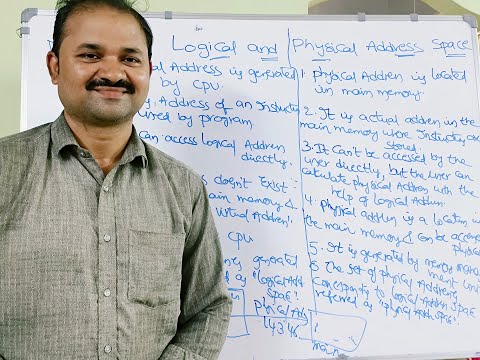 Logical and Physical Address Space
al Address is generated
by CPU.
Address of an Instructi
used by program.
can access Logical Address
directly.
s doesn't Exist
ain memory &
virtual Address'.
CPU
generated
as "logical Add
Space"
1. physical Addren is located
in main memory.
2. It is actual addren in the
main memory were Instructions are
stored.
3. It can't be accessed by the
user directly, but the User can
calculate physical Addren with the
help of Logical Addren.
4. Physical addren is a location in
the main memory & can be accened
physical
5. It is generated by memory
ment unit
6 The set of physical Addresses
to logical Addren space
referred as "physical Addr space".
physical Add
14346
main